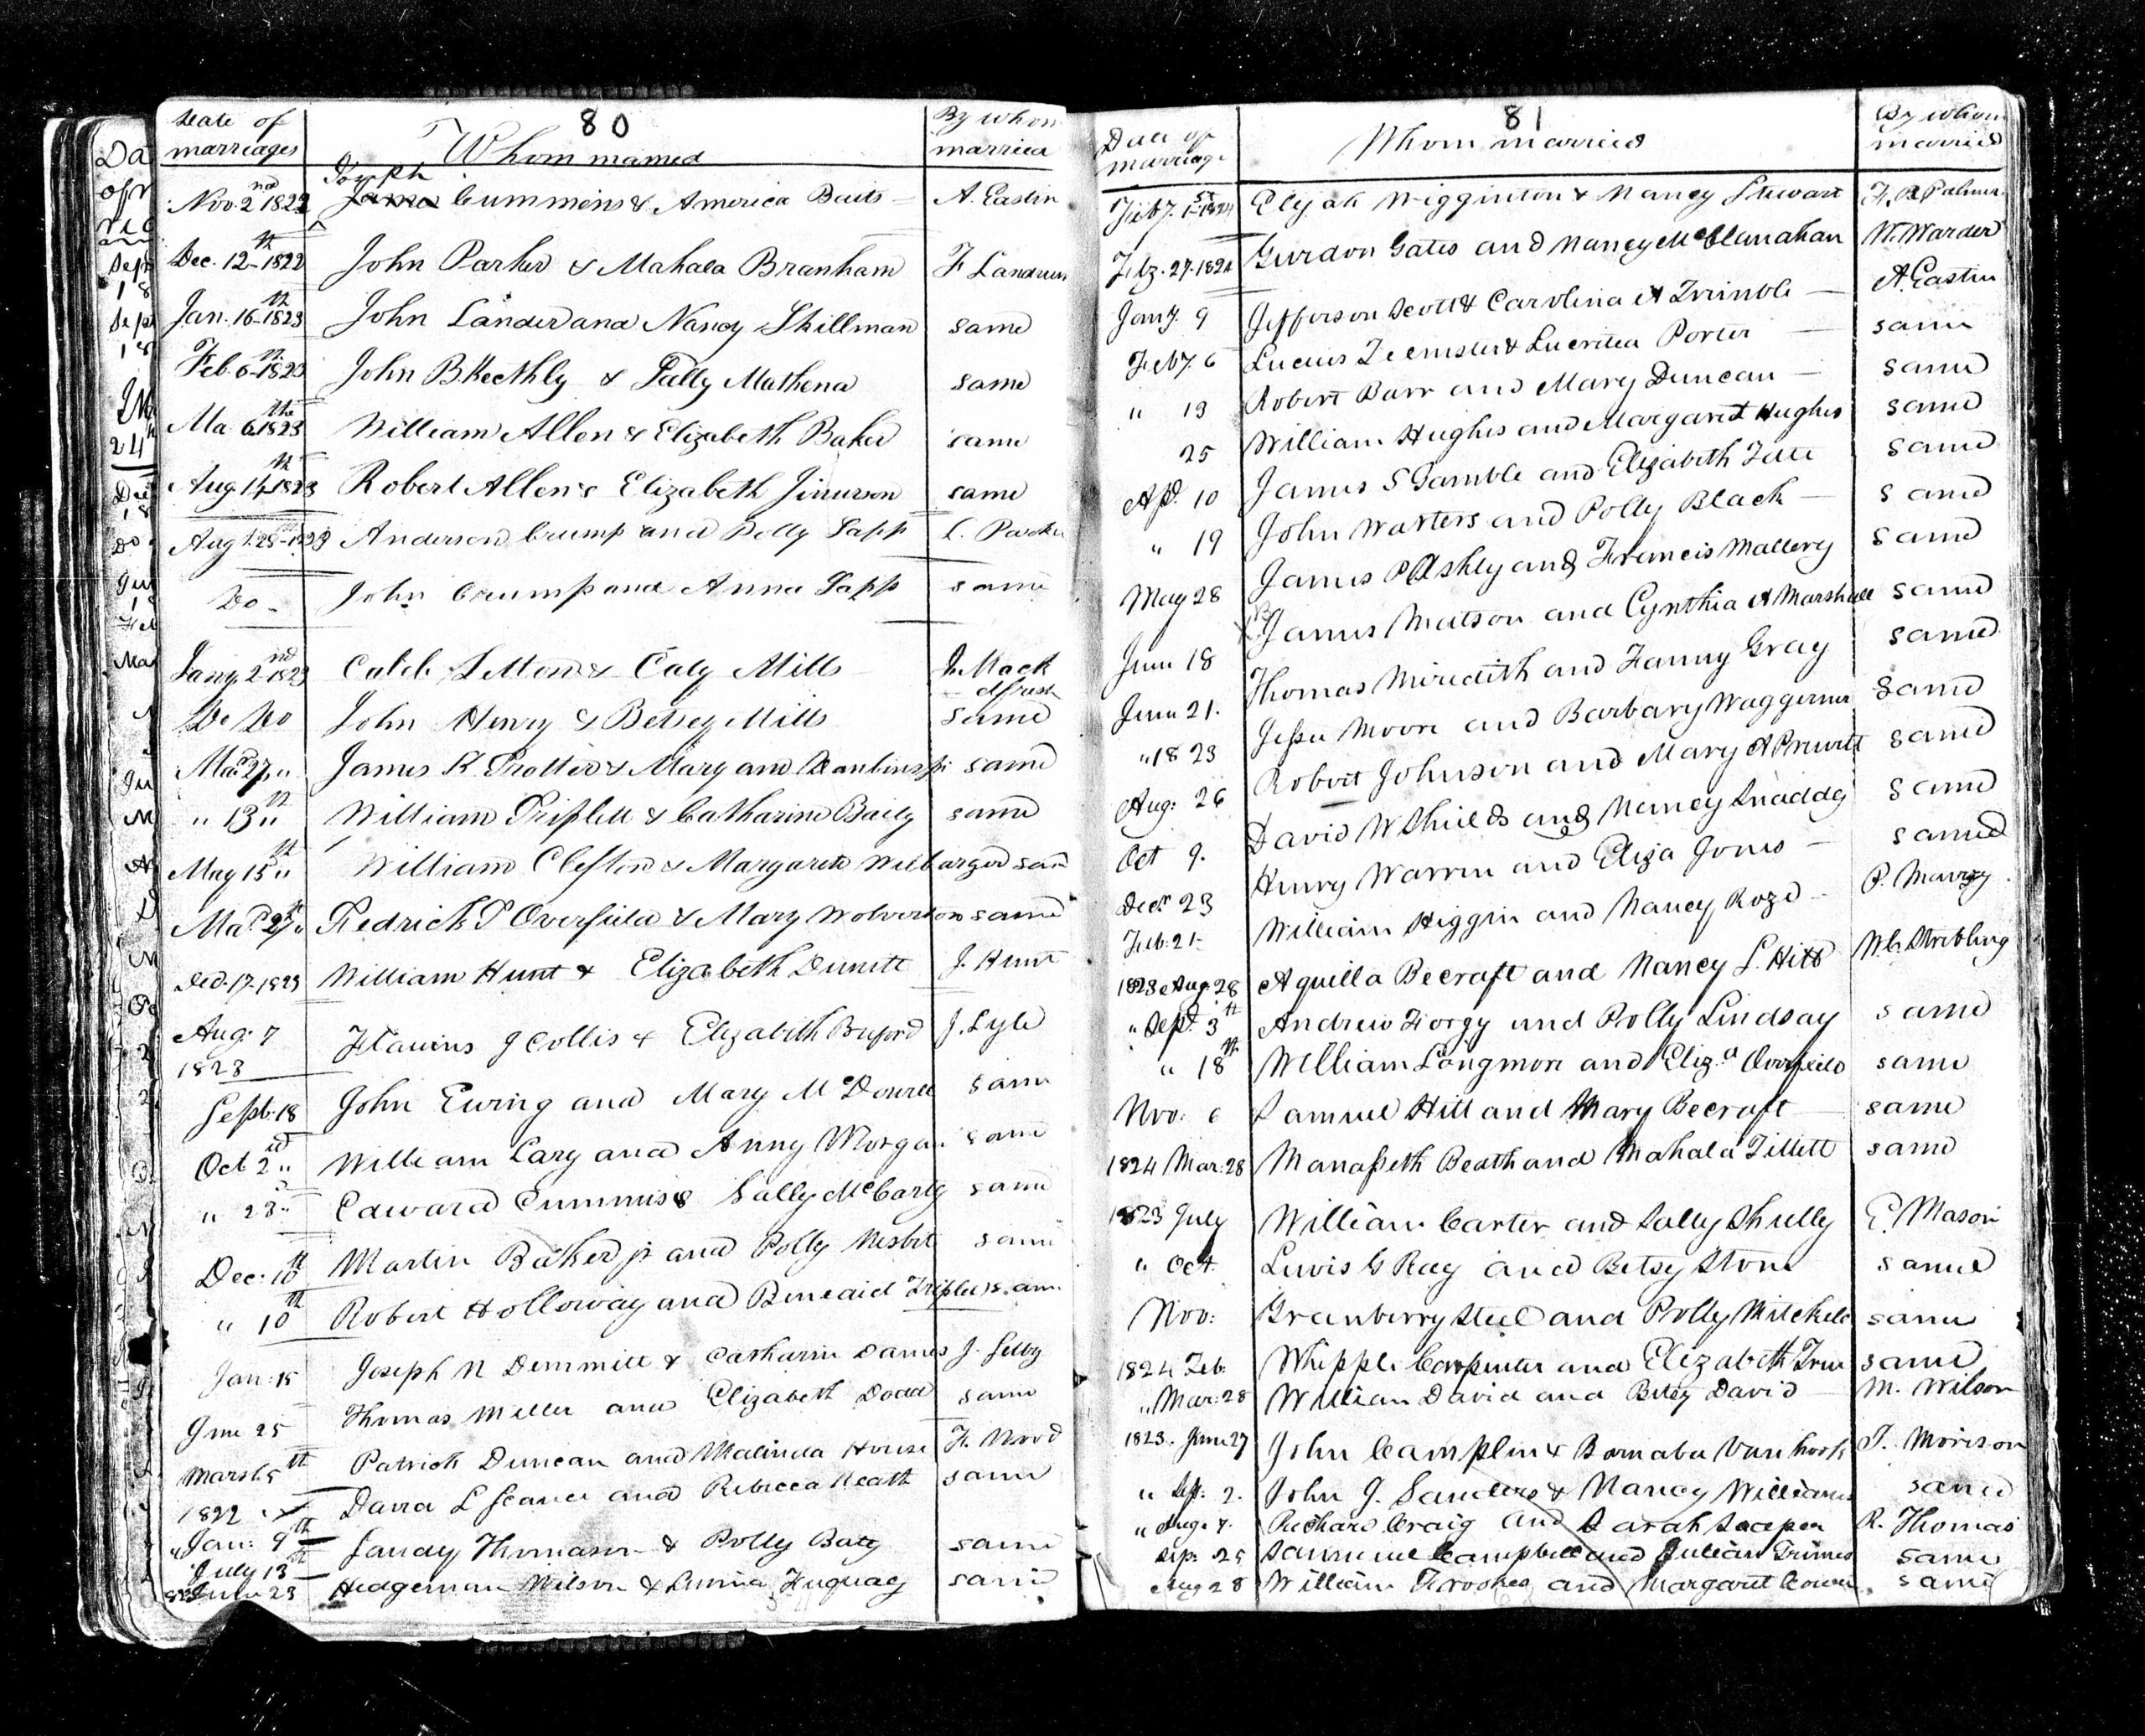 80
Date of marriages Whom married By whom married
Joseph
Nov. 2nd 1822 James Cummins & America Baits A. Eastin
Dec. 12th 1822 John Parker & Mahala Branham F Landrum
Jan. 16th 1823 John Lander and Nancy Skillman same
Feb. 6th 1823 John B Keethly & Tally Mathena same
Ma 6th 1823 William Allen & Elizabeth Baker same
Aug 14th 1823 Robert Allen & Elizabeth Jimerson same
Augt. 28 1823 Anderson Crump and Polly Sapp L. Parker
Do John Crump and Anna Sapp same
Jany 2nd 1823 Caleb Letton & Caty Mills J. Mack
Do Do John Henry & Betsey Mills same
Mar 27 " James K Trotter & Mary ann same
" 13th " William Triplett & Catharine Baily same
May 15th " William Clifton & Margarett Wilbarger same
Mar 27th " Fedrick P Overfield & Mary Wolverton same
Ded. 17. 1823 William Hunt & Elizabeth Dunitt J. Hunt
Aug. 7 1823 Flavius J Collis & Elizabeth Buford J. Lyle
Sept. 18 John Ewing and Mary McDowell same
Oct 2nd " William Lary and Anny Morgan same
" 23 " Edward Cummins & Sally McCarty same
Dec. 10th Martin Baker jr and Polly Nesbit same
" 10th Robert Holloway and Triplett same
Jan: 15 Joseph N Demmitt & Catharin Daniels J. Selby
June 25 Thomas Miller and Elizabeth Dodd same
March 5th Patrick Duncan and Malinda House F. Wood
1822 David L and Rebecca Heath same
" Jan: 9th Sandy Thomason & Polly Baty same
" July 13th
June 23 Hedgeman Wilson & Fuquay same
81
Date of marriage Whom married By whom married
Feby. 1st 1824 Elijah Wigginton & Nancy Stewart F. R Palmer
Feby. 27. 1824 Gurdon Gates and Nancy McClanahan W. Warder
Jany. 9 Jefferson Scott & Carolina A Trimble A. Eastin
Feby. 6 Lucius & Lucretia Porter same
" 13 Robert Barr and Mary Duncan same
25 William Hughes and Margaret Hughes same
Apl. 10 James S Gamble and Elizabeth same
" 19 John Watters and Polly Black same
May 28 James P Ashly and Francis Mallery same
June 18 James Matson and Cynthia A Marshall same
June 21. Thomas Miredith and Fanny Gray same
" 1823 Jesse Moore and Barbary Waggerner same
Aug: 26 Robert Johnson and Mary A Prewitt same
Oct 9. David W Shields and Nancy Snaddy same
Decr 23 Henry Warren and Eliza Jones same
Feb. 21 William Higgin and Nancy Roze P. Marry
1823 Aug. 28 Aquilla Becraft and Nancy L. Hitt W. C. Stribling
" Sept. 3th Andrew Forgy and Polly Lindsay same
" 18th William Longmore and Eliz.a Overfield same
Nov: 6 Samuel Hill and Mary Becraft same
1824 Mar: 28 Manasseth Beath and Mahala Tillett same
1823 July William Carter and Sally Shully E. Mason
" Oct. Lewis G Ray and Betsey Stone same
Nov: Granberry Steel and Polly Mitchele same
1824 Feb. Whipple Carpenter and Elizabeth True same
" Mar: 28 William David and Betsy David M. Wilson
1823. June 27 John Camplin & Barnaba Vanhook T. Morison
" Sep: 2. John J. Sanders & Nancy Williams same
" Aug. 7. Richard Craig and Sarah R. Thomas
Sep: 25 Sammuel Campbell and Julian Grimes same
Aug 28 William Brookes and Margaret same